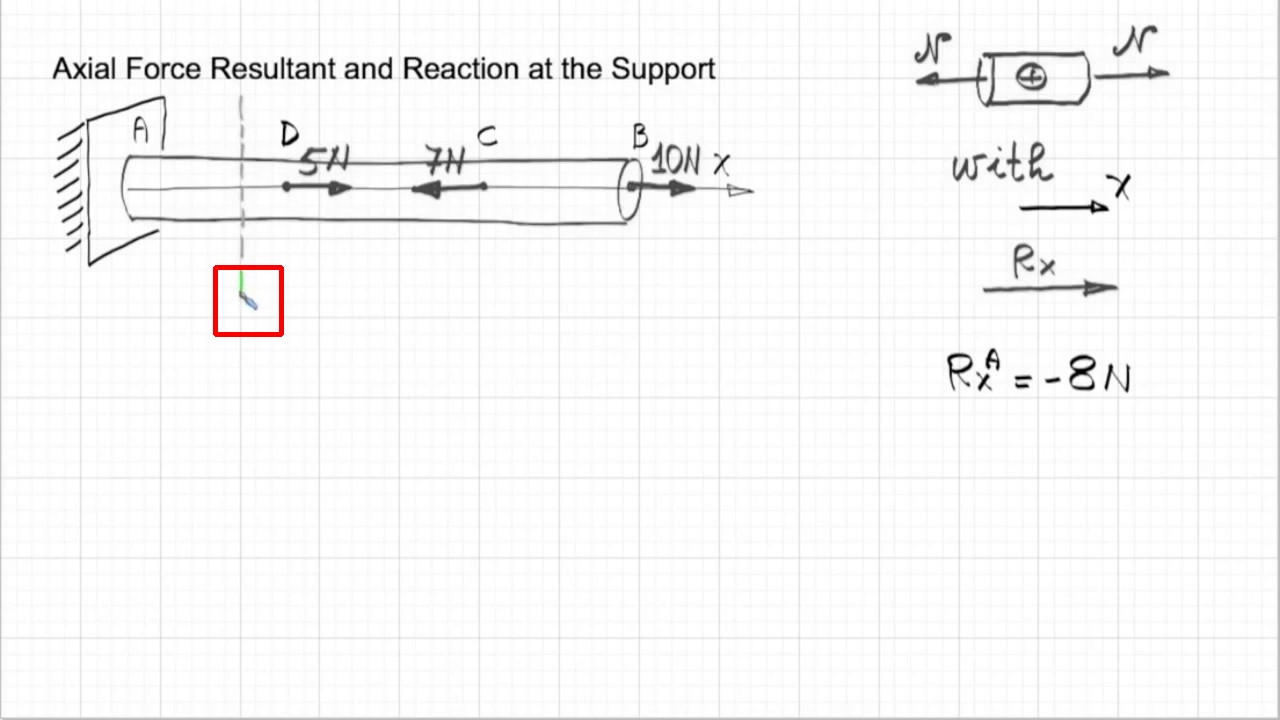 Axial Force Resultant and Reaction at the Support
N N
A D C B
5N 7N 10N x
with
x
Rx
RxA = -8N